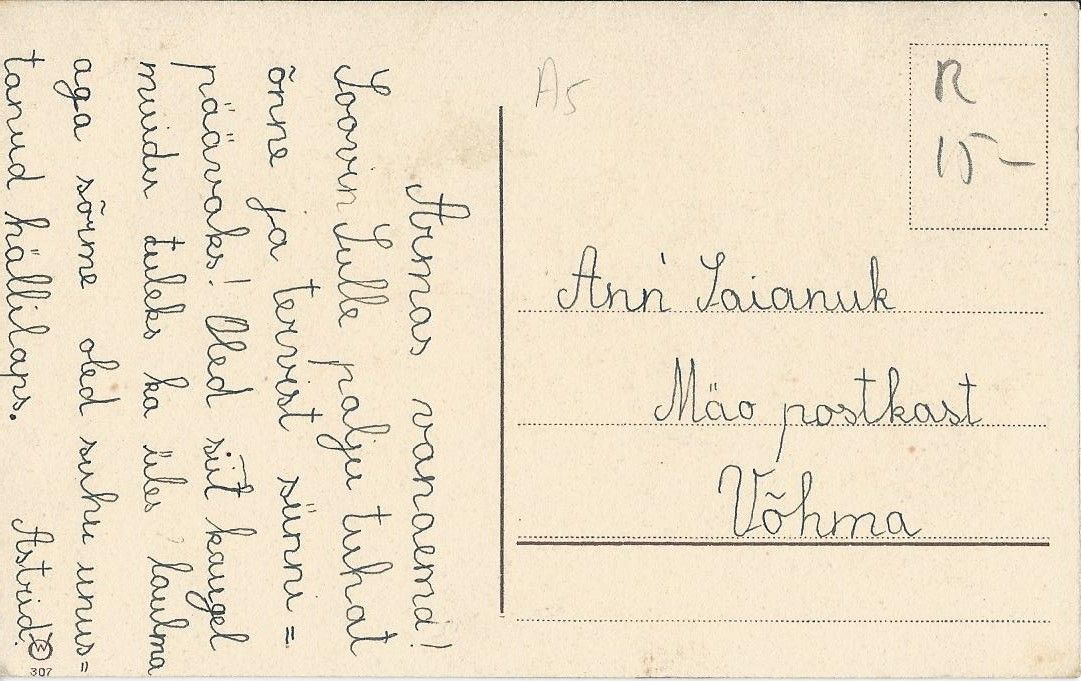 Armas vanaema!
Soovin Sulle palju tuhat
õnne ja tervist sünni=
päävaks! Oled siit kaugel
muidu tuleks ka üles laulma
aga sõrme oled suhu unus=
tanud hällilaps.
Astrid.
307
A5
R
15-
Ann Saianuk
Mäo postkast
Võhma